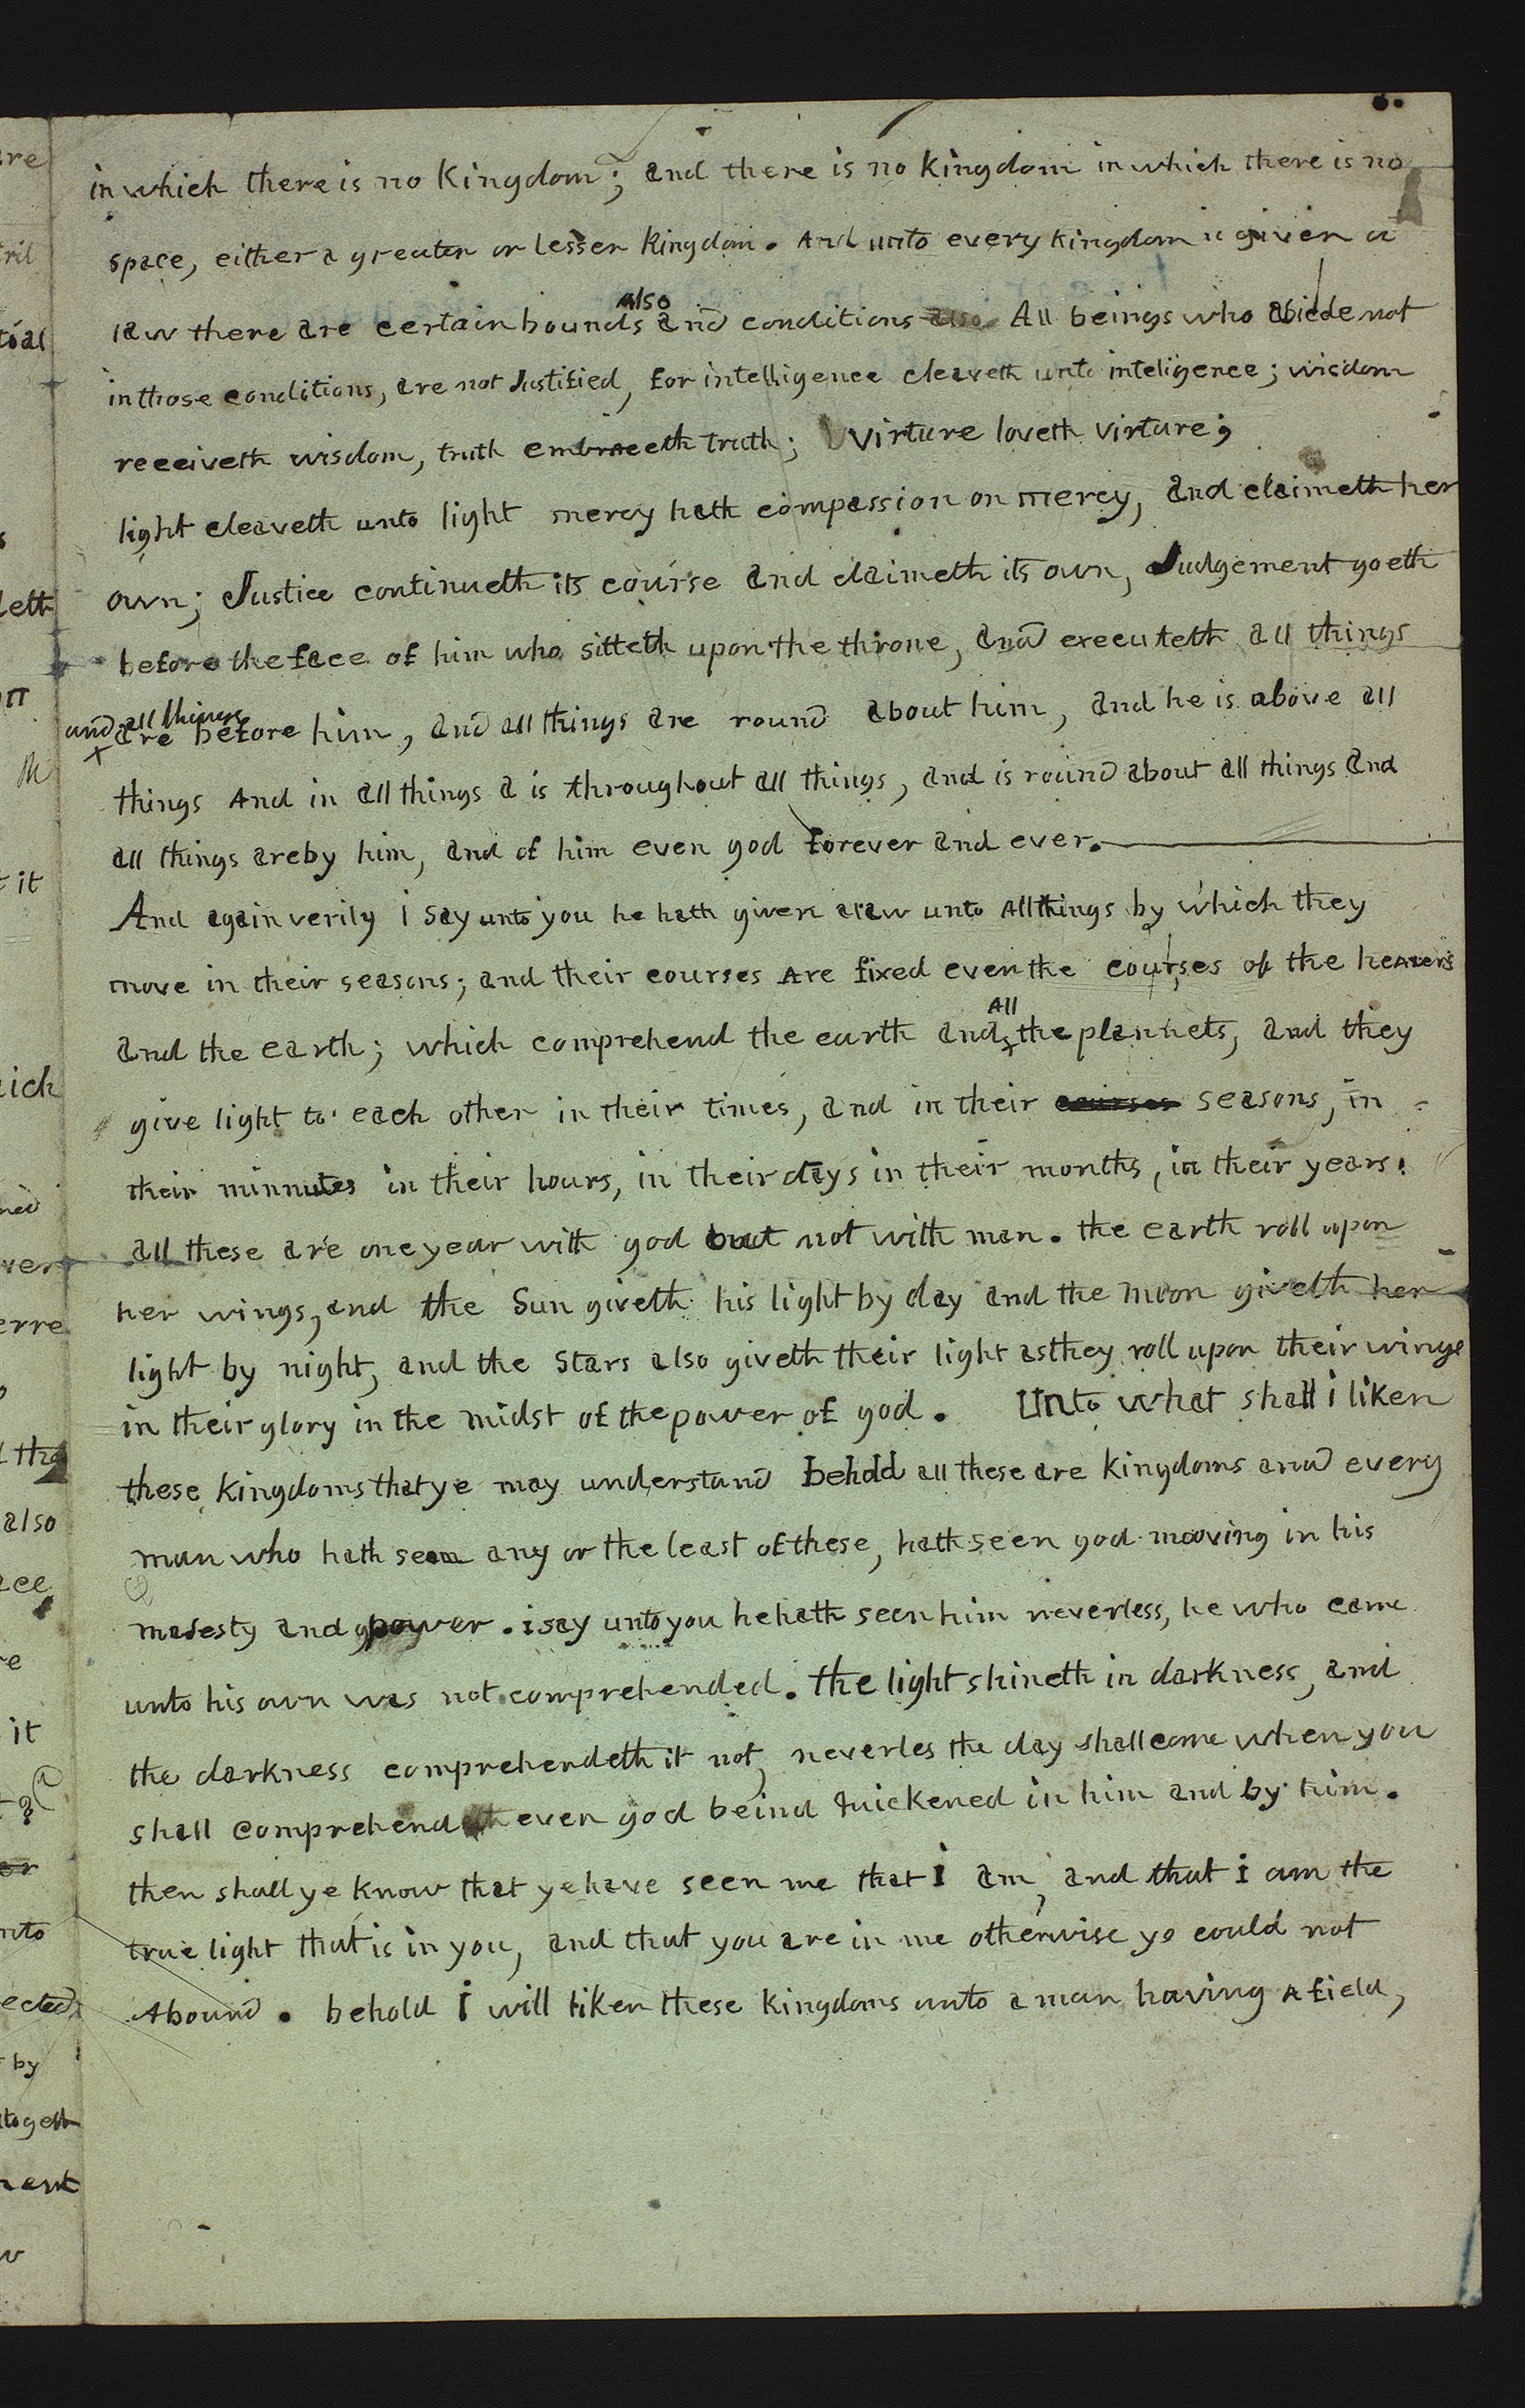 in which there is no Kingdom; and there is no kingdom in which there is no
space, either a greater or lesser kingdom. And unto every kingdom is given a
law there are certain bounds also and conditions also All beings who abide not
in those conditions, are not Justified, for intelligence cleaveth unto inteligence; wisdom
receiveth wisdom, truth embraceth truth; virture loveth virture;
light cleaveth unto light mercy hath compassion on mercy, and claimeth her
own; Justice continueth its course and claimeth its own, Judgement goeth
before the face of him who sitteth upon the throne, and executeth all things
and all things are before him, and all things are round about him, and he is above all
things And in all things a is throughout all things, and is round about all things and
all things are by him, and of him even god forever and ever.
And again verily i say unto you he hath given a law unto All things by which they
move in their seasons; and their courses Are fixed even the courses of the heavens
and the earth; which comprehend the earth and All the plannets, and they
give light to each other in their times, and in their courses seasons, in
their minnutes in their hours, in their days in their months, in their years.
all these are one year with god but not with man. the earth roll upon
her wings, and the Sun giveth his light by day and the moon giveth her
light by night, and the Stars also giveth their light as they roll upon their wings
in their glory in the midst of the power of god. Unto what shall i liken
these kingdoms that ye may understand behold all these are kingdoms and every
man who hath seen any or the least of these, hath seen god mooving in his
majesty and power. i say unto you he hath seen him neverless, he who came
unto his own was not comprehended. the light shineth in darkness, and
the darkness comprehendeth it not, neverles the day shall come when you
shall comprehend even god beind quickened in him and by him.
then shall ye know that ye have seen me that i am, and that i am the
true light that is in you, and that you are in me otherwise ye could not
Abound. behold i will liken these kingdoms unto a man having A field,